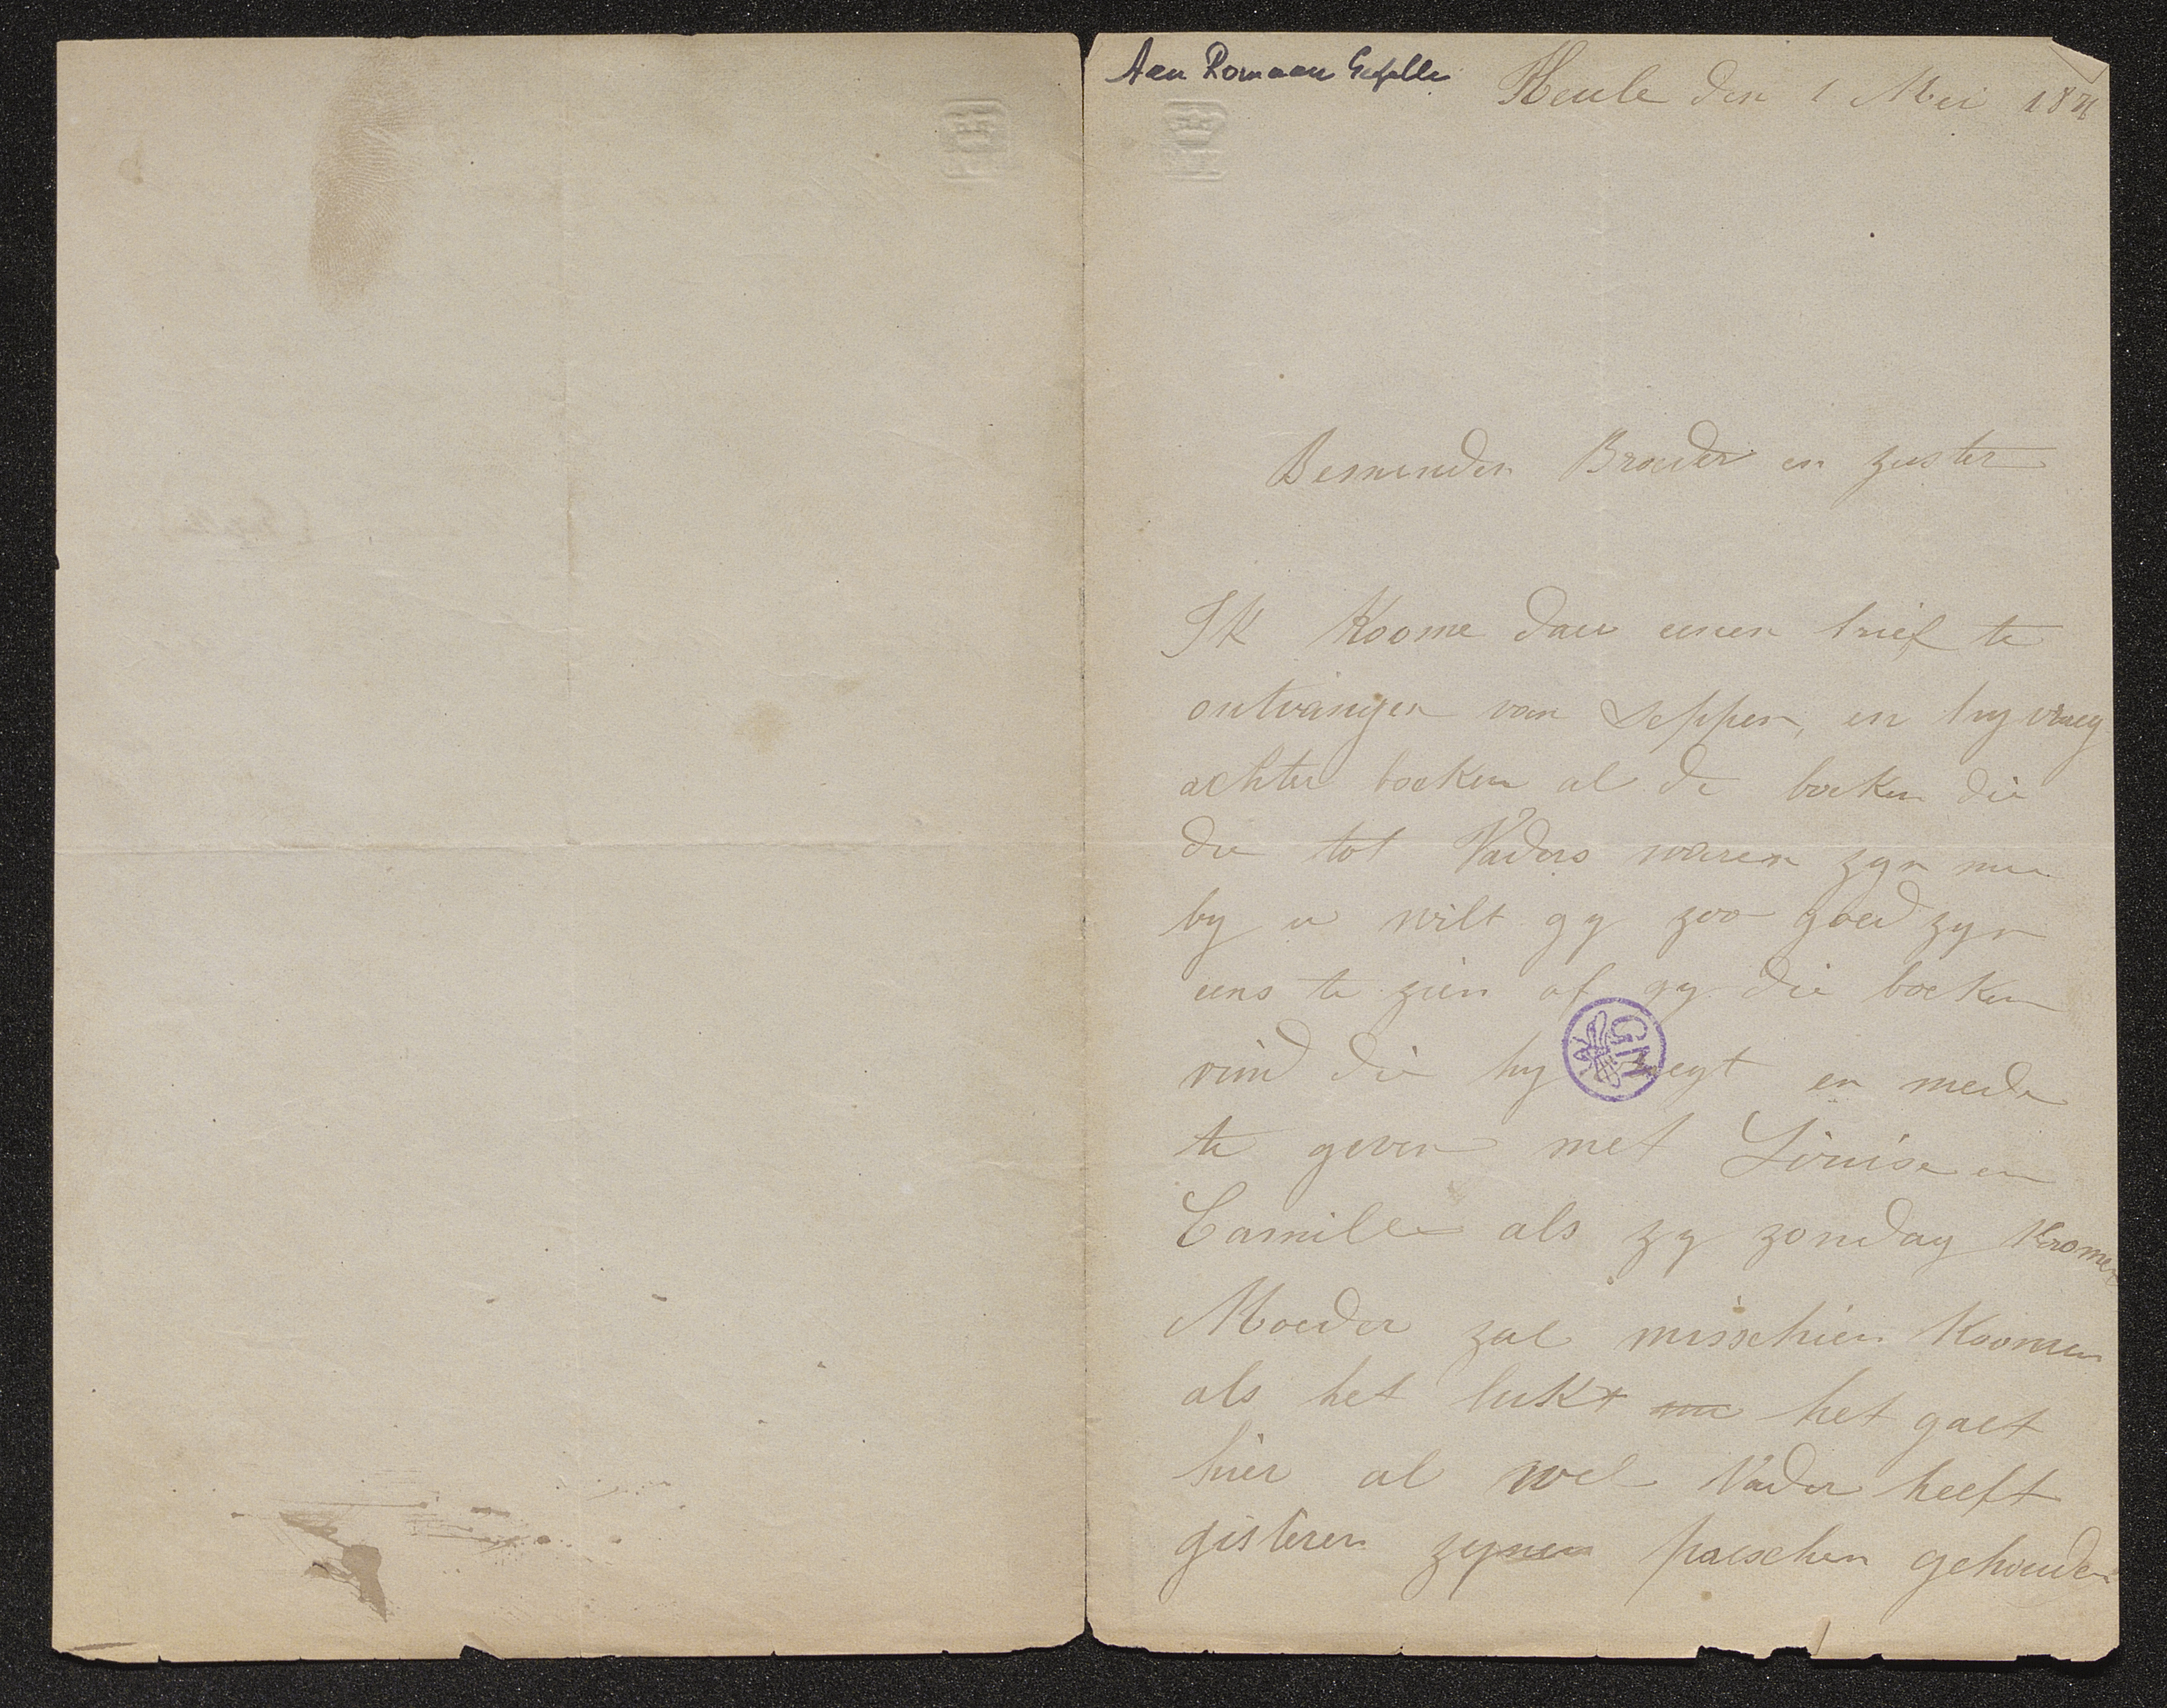 Aen Romaan Gezelle
Heule den 1 Mei 1871
Beminden Broeder en zuster
Ik koome daer eenen brief te
ontvangen van Seppen, en hy vraeg
achter boeken al de boeken die
die tot Vaders waren zyn nu
by u wilt gy zoo goed zyn
eens te zien of gy die boeken
vind die hy zegt en mede
te geven met Louise en
Camille als zy zondag koomen
Moeder zal misschien koomen
als het lukt het gaet
hier al wel Vader heeft
gisteren zynen paeschen gehouden
GM